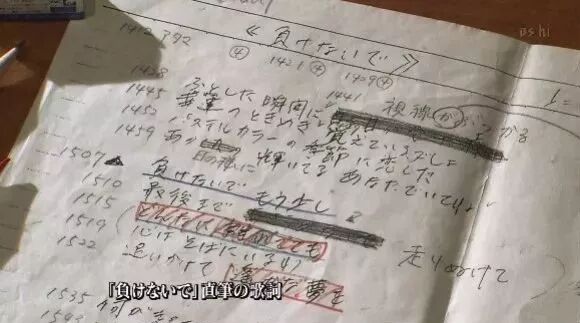 《負けないで》
1412
④ 1421④ 1429④
1438 ふとした瞬間に 視線がぶつかる
1445 幸運のときめき 覚えているでしょ
1452 パステルカラーの季節に恋した
1459 あの日の様に輝いてる あなたでいてね
1507
1510 負けないで もう少し
1515 最後まで 走りぬけて
1519 どんなに 離れてても
1522 心は そばにいるわ
追いかけて 遥かな夢を
1535
「負けないで」直筆の歌詞
BShi